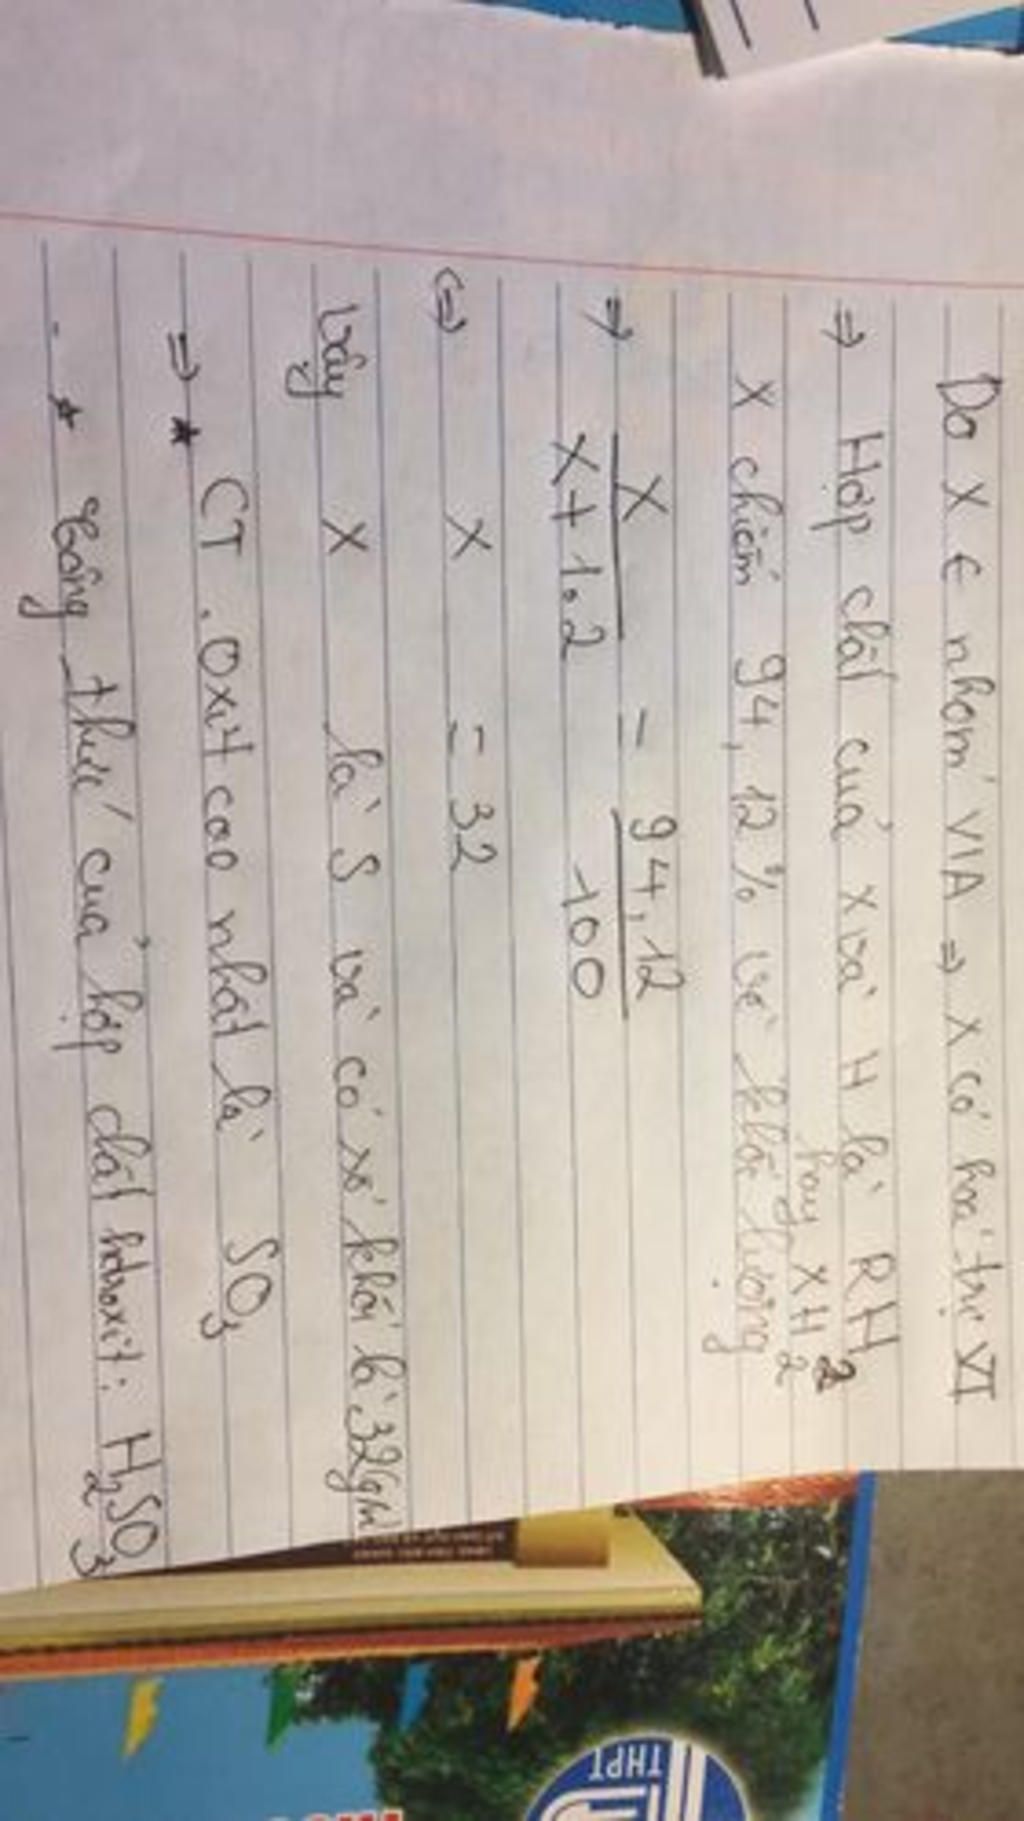 Do X ∈ nhóm VIA ⇒ X có hoá trị VI
⇒ Hợp chất của X và H là RH2
hay XH2
X chiếm 94,12% về khối lượng
⇒ X / X+1.2 = 94,12 / 100
(=) X = 32
Vậy X là S và có số khối là 32
⇒ * CT. Oxit cao nhất là SO3
* Công thức của hợp chất hidroxit: H2SO3
THPT